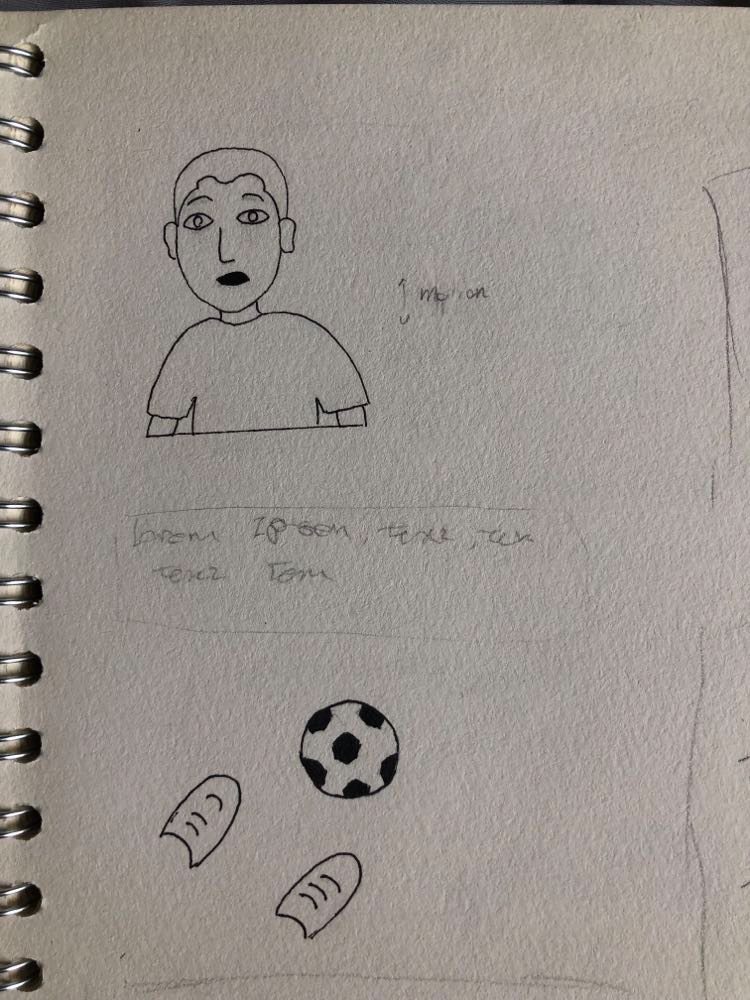 motion
Lorem Ipsem, text, tex
text Tem